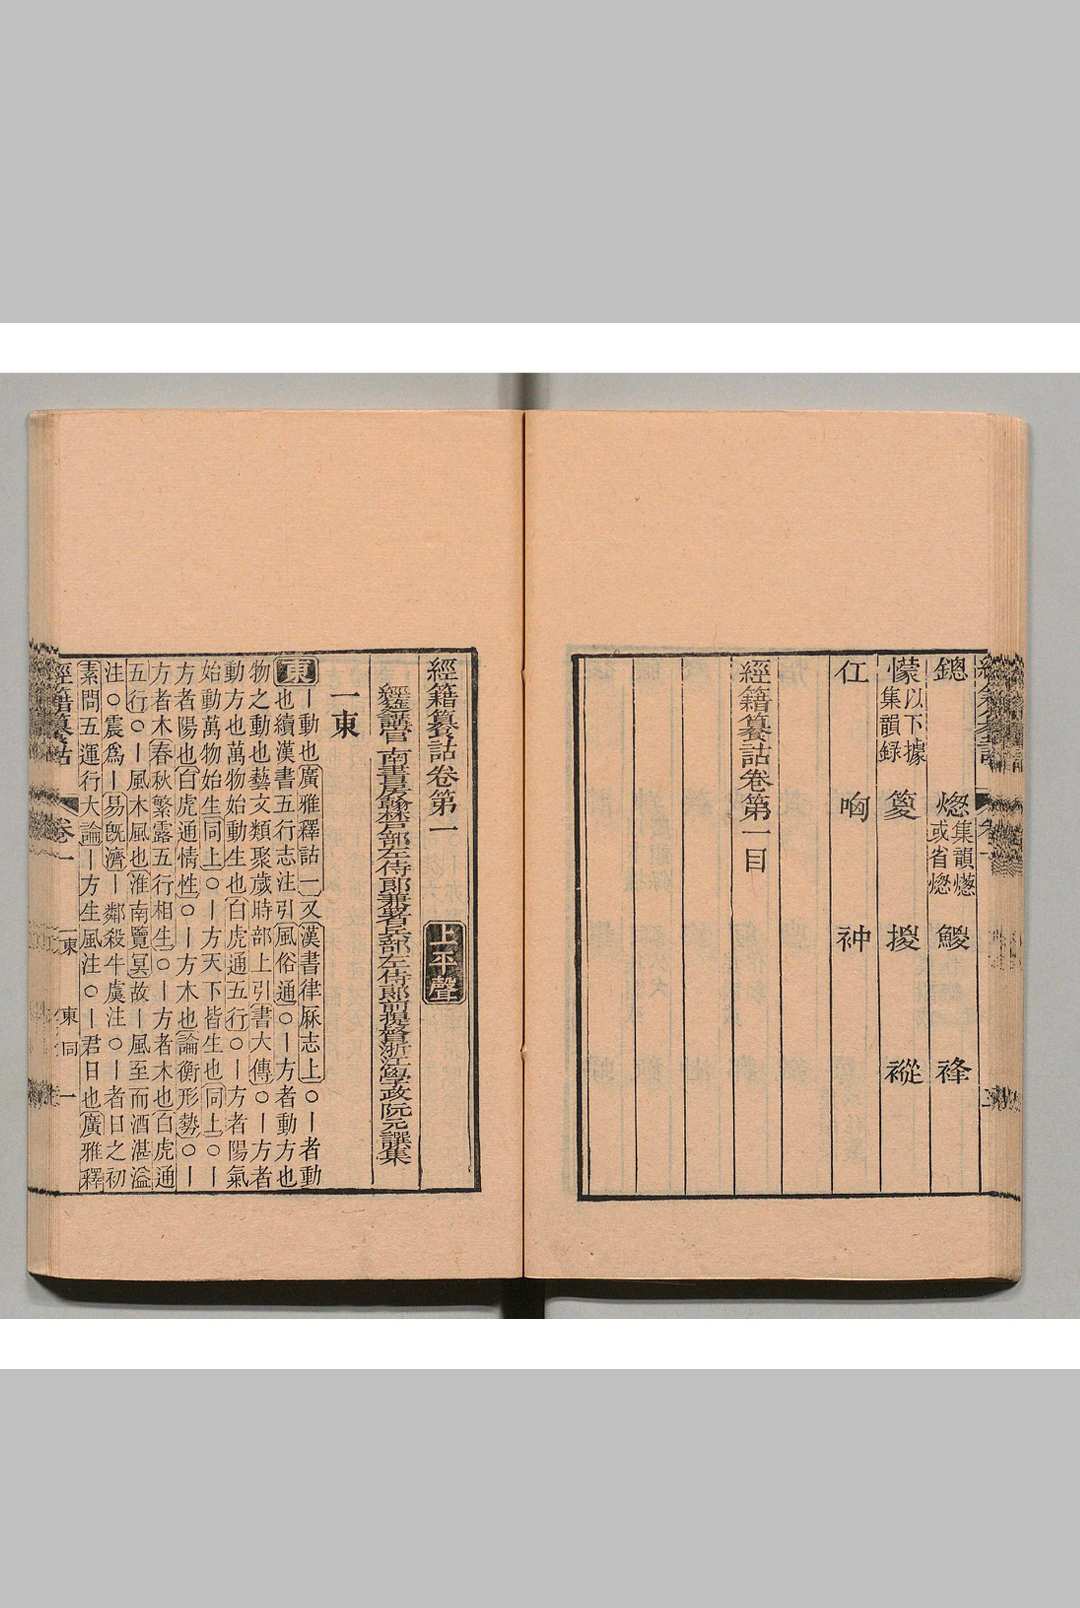 鏓 㷓集韻㷓或省㷓 鯼 䘪
懞以下據集韻錄 㚇 㨑 褷
仜 哅 衶
經籍籑詁卷第一目
經籍籑詁卷第一 上平聲
經筵講官南書房翰林戶部左侍郎兼署兵部左侍郎前提督浙江學政阮元譔集
一東
東丨動也廣雅釋詁一又漢書律厤志上○丨者動
也續漢書五行志注引風俗通○丨方者動方也
物之動也藝文類聚歲時部上引書大傳○丨方者
動方也萬物始動生也白虎通五行○丨方者陽氣
始動萬物始生同上○丨方天下皆生也同上○丨
方者陽也白虎通情性○丨方木也論衡形勢○丨
方者木春秋繁露五行相生○丨方者木也白虎通
五行○丨風木風也淮南覽冥故丨風至而酒湛溢
注○震爲丨易旣濟丨鄰殺牛虞注○丨者日之初
素問五運行大論丨方生風注○丨君日也廣雅釋
經籍籑詁 卷一 一東 東 同 一